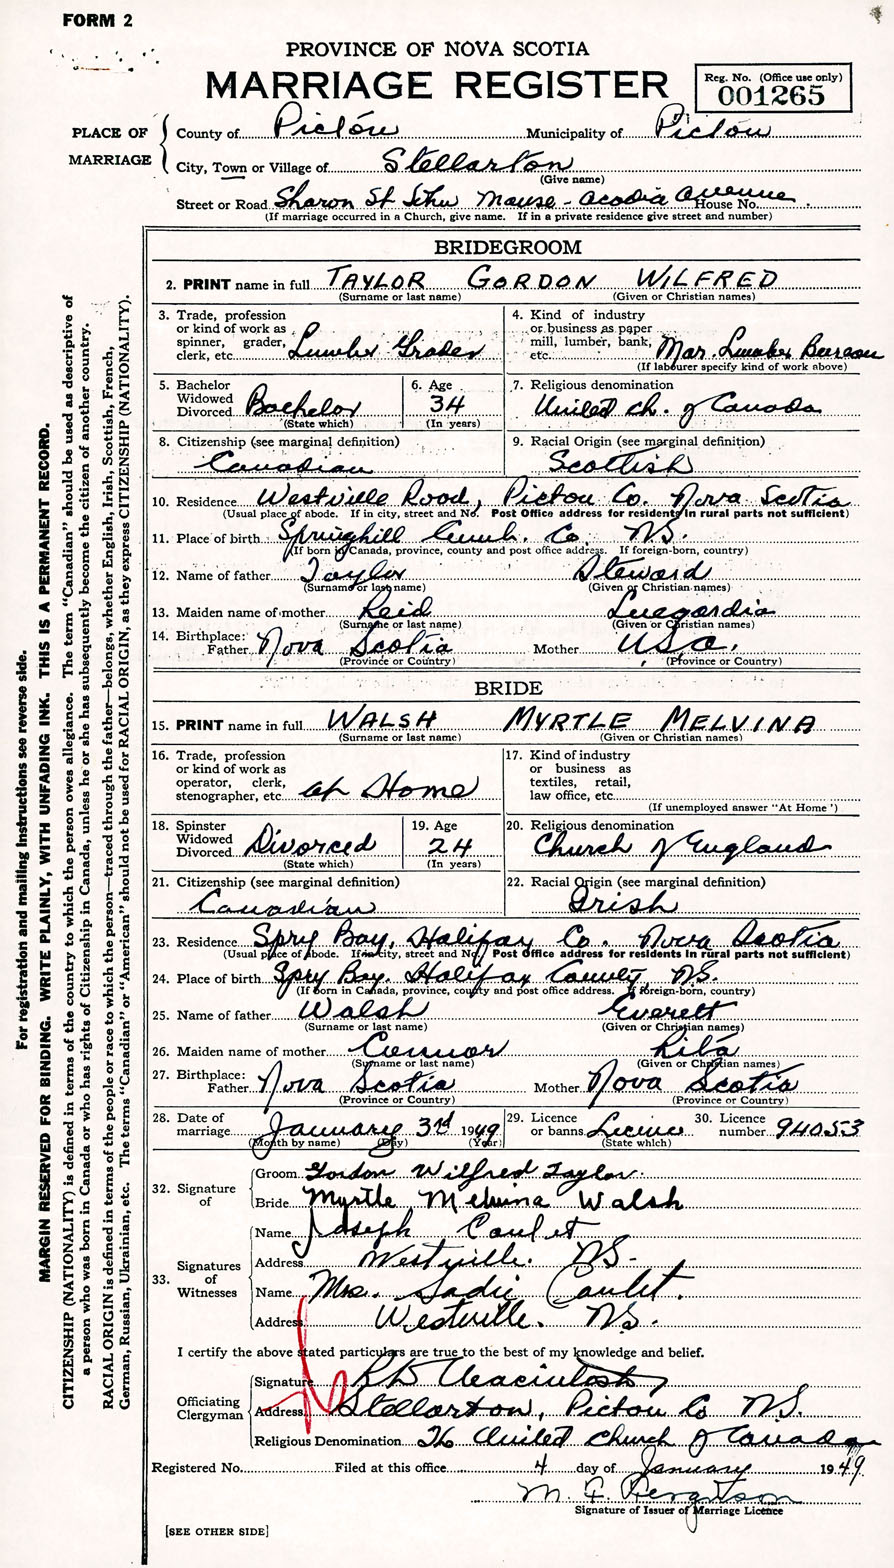 FORM 2
PROVINCE OF NOVA SCOTIA
MARRIAGE REGISTER
Reg. No. (Office use only)
001265
PLACE OF MARRIAGE
County of Pictou Municipality of Pictou
City, Town or Village of Stellarton
(Give name)
Street or Road Sharon St John Manse - Acadia Avenue House No.
(If marriage occurred in a Church, give name. If in a private residence give street and number)
BRIDEGROOM
2. PRINT name in full TAYLOR GORDON WILFRED
(Surname or last name) (Given or Christian names)
3. Trade, profession or kind of work as spinner, grader, clerk, etc. Lumber Grader
4. Kind of industry or business as paper mill, lumber, bank, etc. Mar. Lumber Bureau
(If labourer specify kind of work above)
5. Bachelor Widowed Divorced Bachelor
(State which)
6. Age 34
(In years)
7. Religious denomination United Ch. of Canada
8. Citizenship (see marginal definition) Canadian
9. Racial Origin (see marginal definition) Scottish
10. Residence Westville Road, Pictou Co. Nova Scotia
(Usual place of abode. If in city, street and No. Post Office address for residents in rural parts not sufficient)
11. Place of birth Springhill Cumb. Co. N.S.
(If born in Canada, province, county and post office address. If foreign-born, country)
12. Name of father Taylor Steward
(Surname or last name) (Given or Christian names)
13. Maiden name of mother Reid Luegardia
(Surname or last name) (Given or Christian names)
14. Birthplace: Father Nova Scotia Mother U.S.A.
(Province or Country) (Province or Country)
BRIDE
15. PRINT name in full WALSH MYRTLE MELVINA
(Surname or last name) (Given or Christian names)
16. Trade, profession or kind of work as operator, clerk, stenographer, etc. at Home
17. Kind of industry or business as textiles, retail, law office, etc.
(If unemployed answer "At Home")
18. Spinster Widowed Divorced Divorced
(State which)
19. Age 24
(In years)
20. Religious denomination Church of England
21. Citizenship (see marginal definition) Canadian
22. Racial Origin (see marginal definition) Irish
23. Residence Spry Bay, Halifax Co. Nova Scotia
(Usual place of abode. If in city, street and No. Post Office address for residents in rural parts not sufficient)
24. Place of birth Spry Bay. Halifax County, N.S.
(If born in Canada, province, county and post office address. If foreign-born, country)
25. Name of father Walsh Everett
(Surname or last name) (Given or Christian names)
26. Maiden name of mother Connor Rita
(Surname or last name) (Given or Christian names)
27. Birthplace: Father Nova Scotia Mother Nova Scotia
(Province or Country) (Province or Country)
28. Date of marriage January 3rd 1949
(Month by name) (Day) (Year)
29. Licence or banns Licence
(State which)
30. Licence number 94053
32. Signature of
Groom Gordon Wilfred Taylor.
Bride Myrtle Melvina Walsh
33. Signatures of Witnesses
Name Joseph Caulet
Address Westville. N.S.
Name Mrs. Sadie Caulet.
Address Westville. N.S.
I certify the above stated particulars are true to the best of my knowledge and belief.
Officiating Clergyman
Signature R D Macintosh
Address Stellarton, Pictou Co N.S.
Religious Denomination The United Church of Canada
Registered No. Filed at this office 4 day of January 1949
M. F. Ferguson
Signature of Issuer of Marriage Licence
[SEE OTHER SIDE]
For registration and mailing instructions see reverse side.
MARGIN RESERVED FOR BINDING. WRITE PLAINLY, WITH UNFADING INK. THIS IS A PERMANENT RECORD.
CITIZENSHIP (NATIONALITY) is defined in terms of the country to which the person owes allegiance. The term "Canadian" should be used as descriptive of
a person who was born in Canada or who has rights of Citizenship in Canada, unless he or she has subsequently become the citizen of another country.
RACIAL ORIGIN is defined in terms of the people or race to which the person—traced through the father—belongs, whether English, Irish, Scottish, French,
German, Russian, Ukrainian, etc. The terms "Canadian" or "American" should not be used for RACIAL ORIGIN, as they express CITIZENSHIP (NATIONALITY).